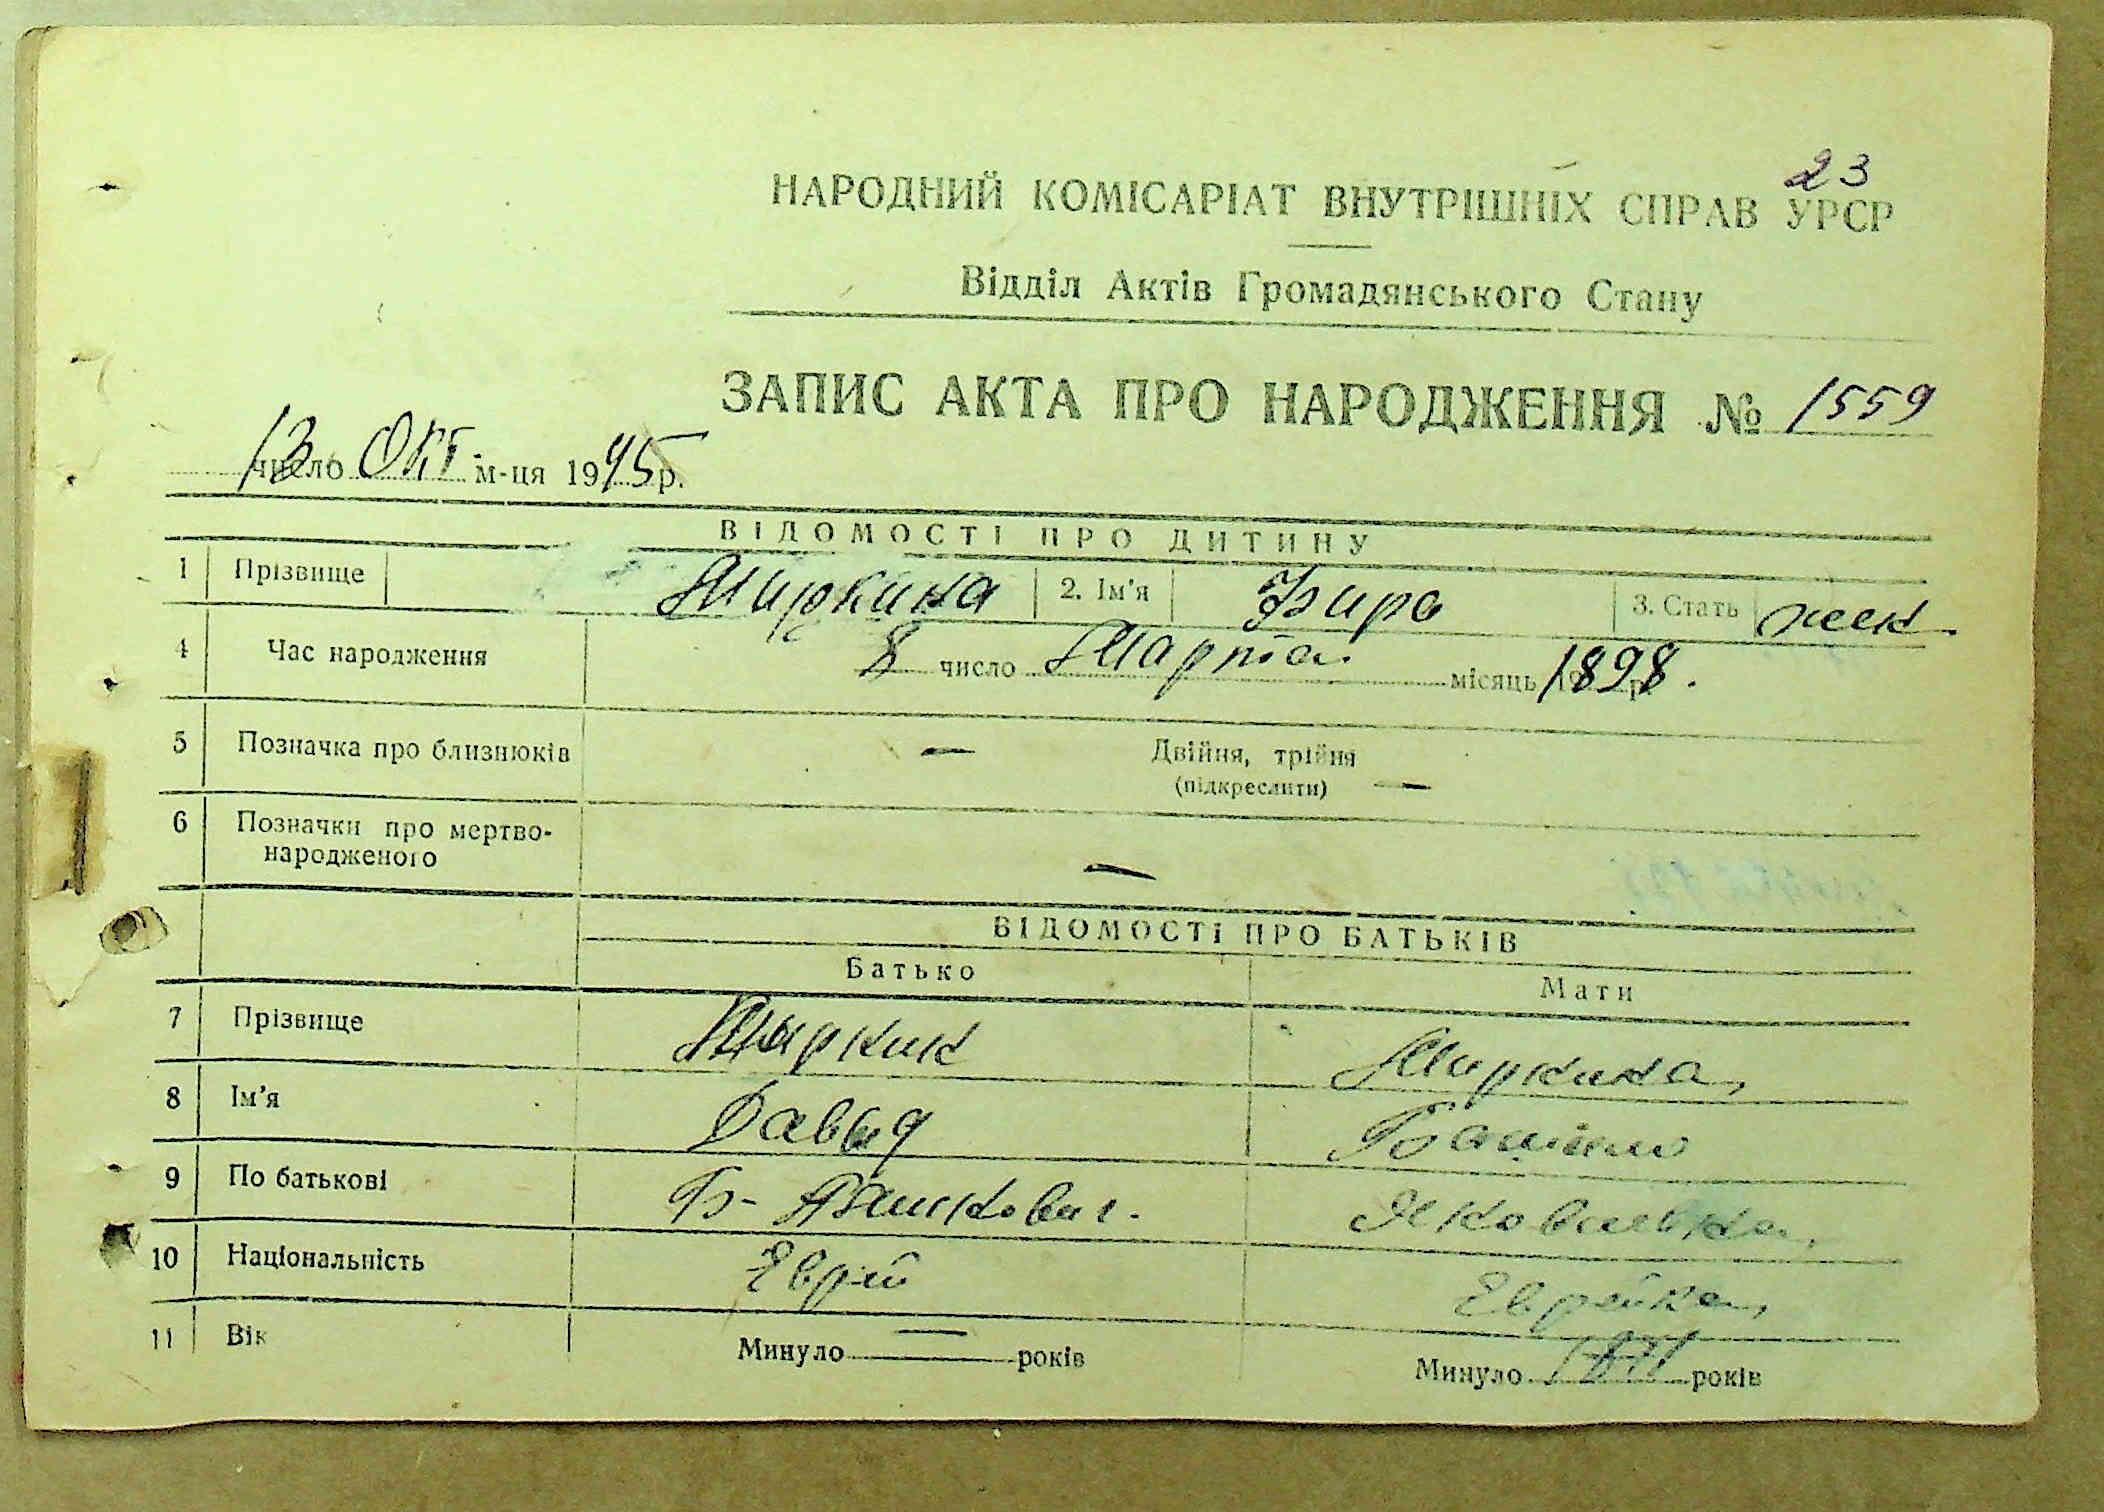 23
НАРОДНИЙ КОМІСАРІАТ ВНУТРІШНІХ СПРАВ УРСР
Відділ Актів Громадянського Стану
ЗАПИС АКТА ПРО НАРОДЖЕННЯ № 1559
13 число Окт. м-ця 1945 р.
ВІДОМОСТІ ПРО ДИТИНУ
1 Прізвище Миркина 2. Ім'я 3. Стать жен
4 Час народження 8 число Марта місяць 1898 р.
5 Позначка про близнюків — Двійня, трійня
(підкреслити) —
6 Позначки про мертво-
народженого —
ВІДОМОСТІ ПРО БАТЬКІВ
Батько Мати
7 Прізвище Миркин Миркина
8 Ім'я Давыд
9 По батькові
10 Національність Еврей Еврейка
11 Вік Минуло — років Минуло років